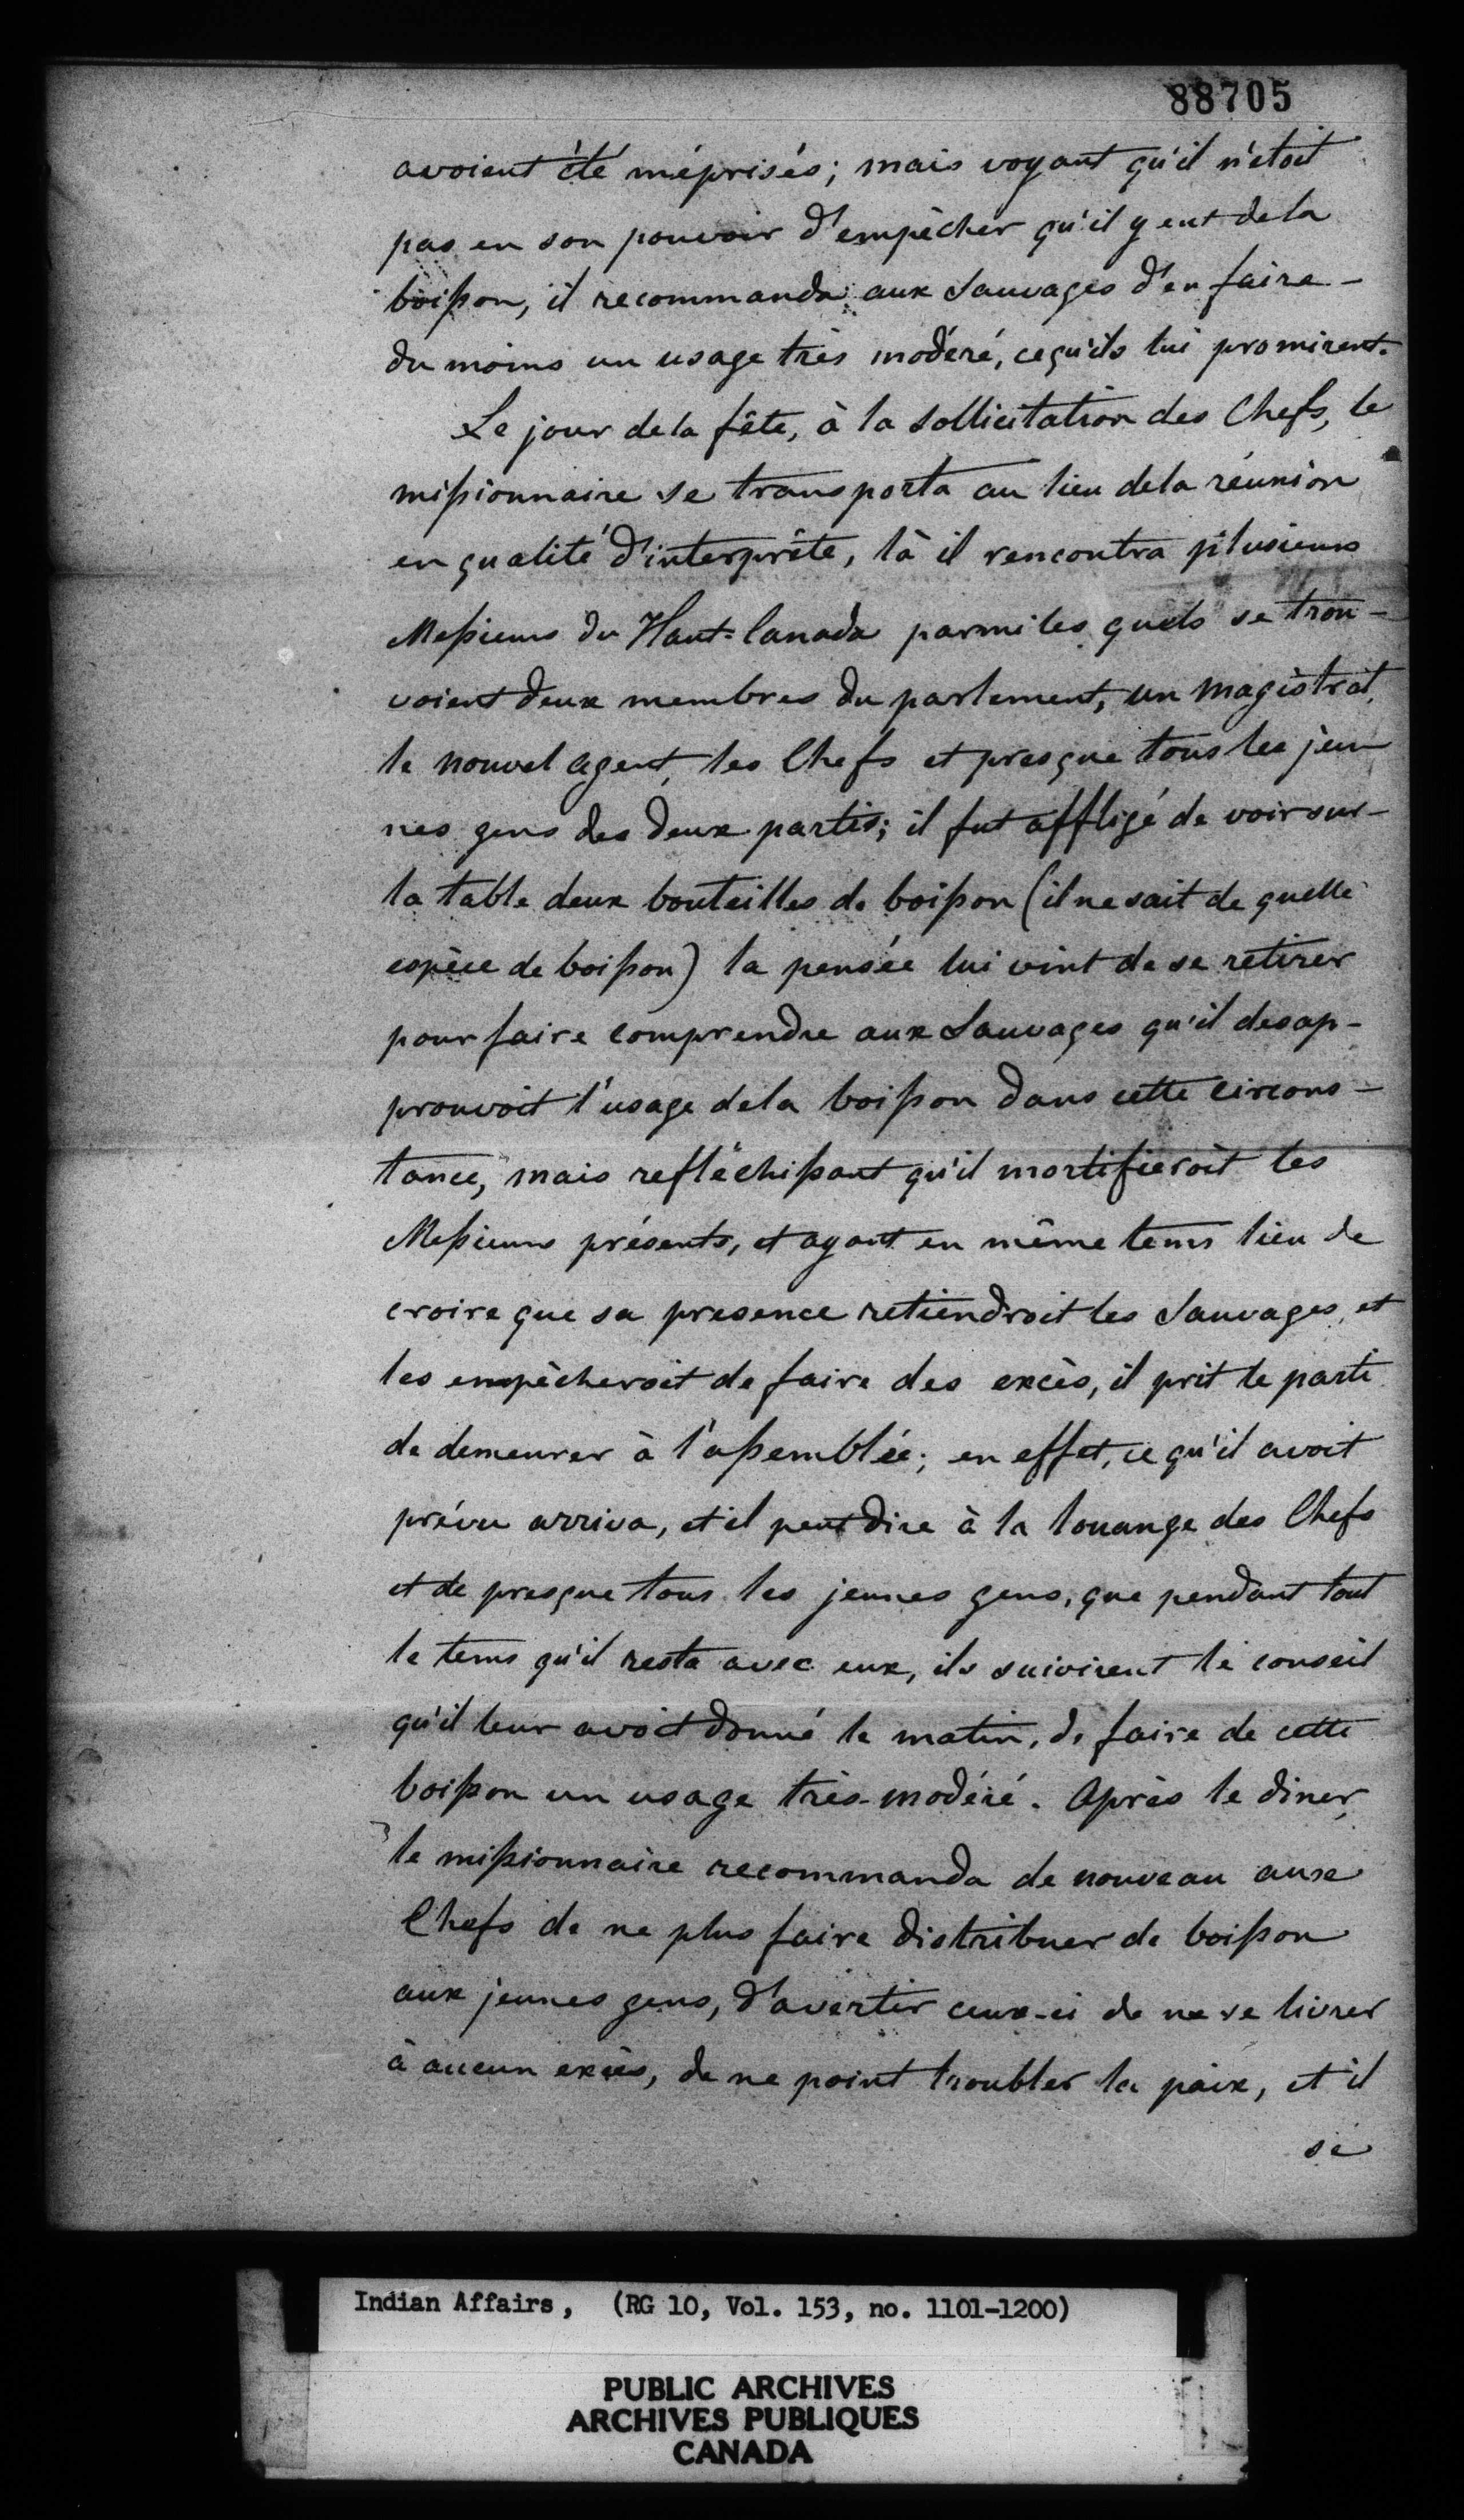 88705
avoient été méprisés; mais voyant qu'il n'étoit
pas en son pouvoir d'empêcher qu'il y eut de la
boisson, il recommanda aux Sauvages d'en faire -
du moins un usage très modéré, ce qu'ils lui promirent.
Le jour de la fête, à la sollicitation des Chefs, le
missionnaire se transporta au lieu de la réunion
en qualité d'interprète, là il rencontra plusieurs
Messieurs du Haut-Canada parmi les quels se trou-
voient deux membres du parlement, un magistrat,
le nouvel agent, les Chefs et presque tous les jeu-
nes gens des deux partis; il fut affligé de voir sur -
la table deux bouteilles de boisson (il ne sait de quelle
espèce de boisson) la pensée lui vint de se retirer
pour faire comprendre aux Sauvages qu'il desap-
prouvoit l'usage de la boisson dans cette circons-
tance, mais refléchissant qu'il mortifieroit les
Messieurs présents, et ayant en même tems lieu de
croire que sa presence retiendroit les Sauvages, et
les empêcheroit de faire des excès, il prit le parti
de demeurer à l'assemblée; en effet, ce qu'il avoit
prévu arriva, et il peut dire à la louange des Chefs
et de presque tous les jeunes gens, que pendant tout
le tems qu'il resta avec eux, ils suivirent le conseil
qu'il leur avoit donné le matin, de faire de cette
boisson un usage très-modéré. Après le diner,
le missionnaire recommanda de nouveau aux
Chefs de ne plus faire distribuer de boisson
aux jeunes gens, d'avertir ceux-ci de ne se livrer
à aucun excès, de ne point troubler la paix, et il
se
Indian Affairs, (RG 10, Vol. 153, no. 1101-1200)
PUBLIC ARCHIVES
ARCHIVES PUBLIQUES
CANADA